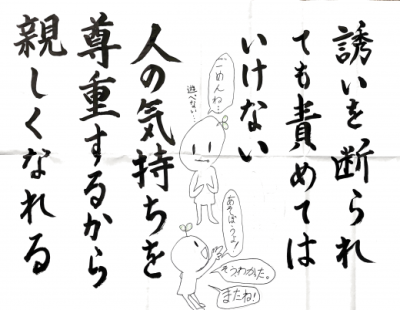 誘いを断られ
ても責めては
いけない
人の気持ちを
尊重するから
親しくなれる
ごめんね…
遊べない…
あそぼうよ!
そっか、わかった。
またね!